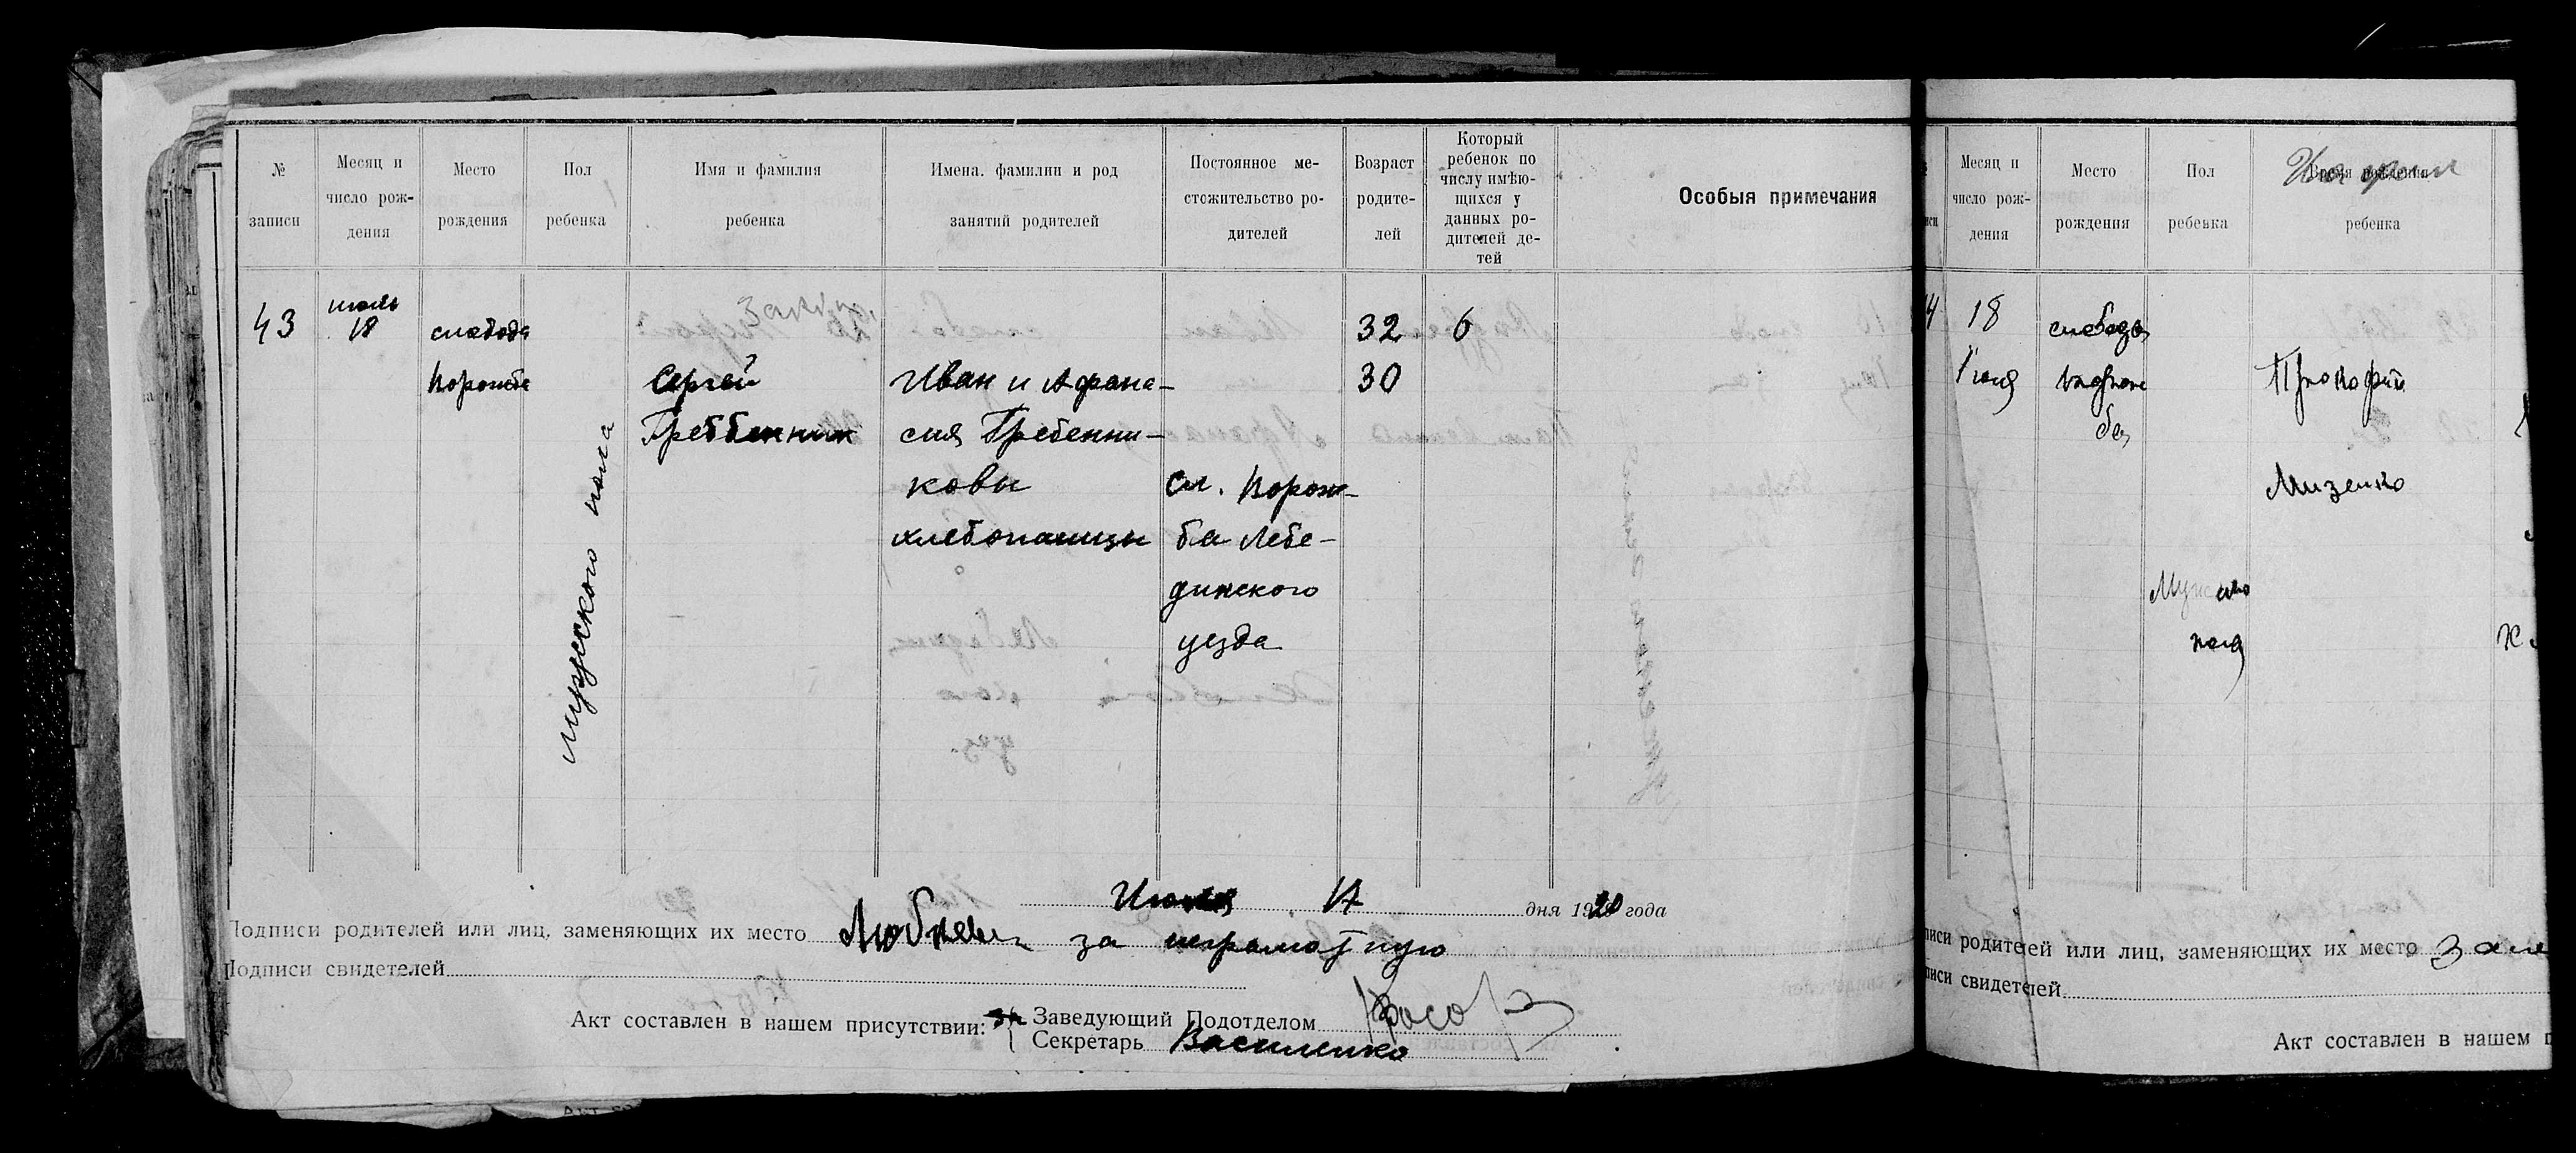 № записи
Месяц и число рождения
Место рождения
Пол ребенка
Имя и фамилия ребенка
Имена. фамилии и род занятий родителей
Постоянное местожительство родителей
Возраст родителей
Который ребенок по числу имѣющихся у данных родителей детей
Особыя примечания
43
июль
18
слобода
Ворожба
мужского пола
Сергей
Гребенник
Иван и Афана-
сия Гребенни-
ковы
хлебопашцы
сл. Ворож-
ба Лебе-
динского
уезда
32
30
6
Июля
дня 1920 года
Подписи родителей или лиц, заменяющих их место
за неграмотную
Подписи свидетелей
Акт составлен в нашем присутствии:
Заведующий Подотделом
Секретарь Василенко
Месяц и число рождения
Место рождения
Пол ребенка
ребенка
18
слобода
Ворож
ба
пола
Прокофий
Мизенко
писи родителей или лиц, заменяющих их место
писи свидетелей
Акт составлен в нашем п